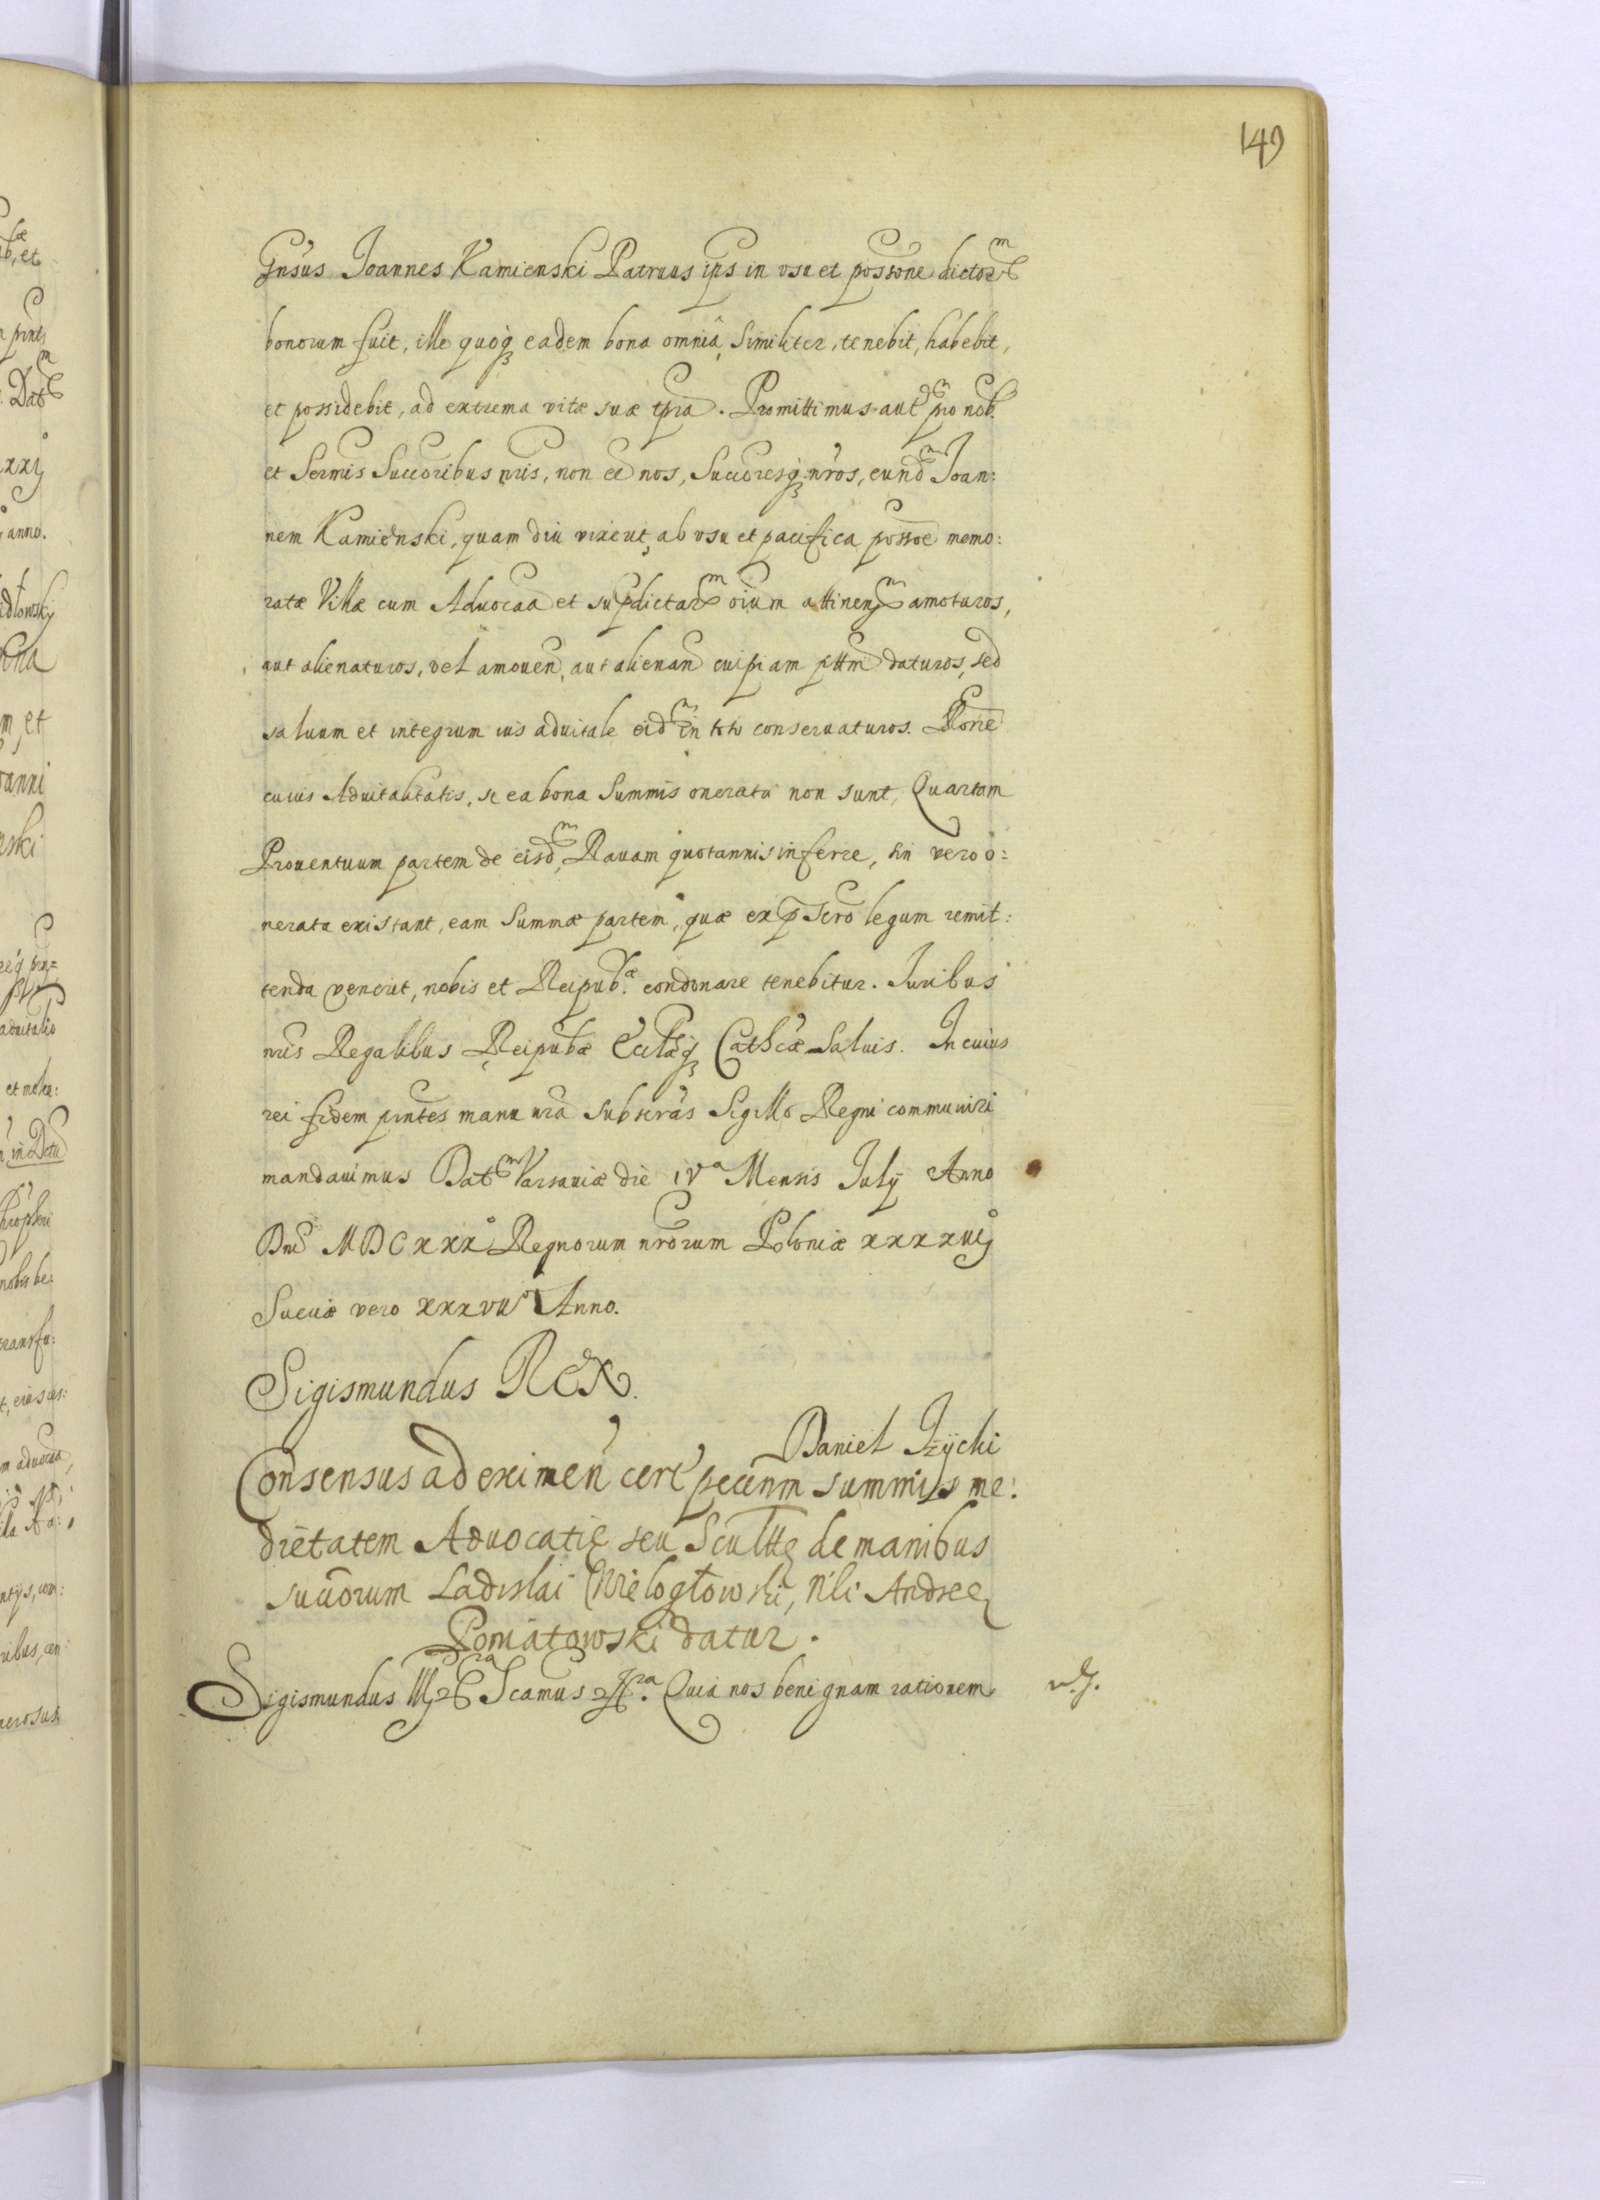 149
Gnsus Joannes Kamienski Patruus ips in vsu et possone dictor
bonorum fuit, ille quoq eadem bona omnia, similiter, tenebit, habebit,
et possidebit, ad extrema vitæ suæ tpra. Promittimus aut pro nob
et Sermis Succoribus nris, non ee nos, Succoresq nros, eund Joan:
nem Kamienski, quam diu vixerit, ab vsu et pacifica possoe memo:
ratæ Villæ cum Aduocaa et supdictar oium attinen amoturos,
aut alienaturos, vel amouen, aut alienan cuipiam pttm daturos, sed
saluum et integrum ius aduitale eid in toto conseruaturos. Rone
cuius Aduitalitatis, si ea bona Summis onerata non sunt, Quartam
Prouentuum partem de eisd, Rauam quotannis inferre, sin vero o:
nerata existant, eam Summæ partem, quæ ex pscro legum remit:
tenda venerit, nobis et Reipub.æ condonare tenebitur. Juribus
nris Regalibus Reipubæ Ecclæq Cathcæ saluis. In cuius
rei fidem pntes manu nra subscras Sigillo Regni communiri
mandauimus Dat Varsauiæ die iva Mensis July Anno
Dni MDCxxx Regnorum nrorum Poloniæ xxxxiij
Sueciæ vero xxxvii Anno.
Sigismundus Rex.
Daniel Jzycki
Consensus ad eximen cert pecunm summis me:
dietatem Aduocatie seu Scultte de manibus
succorum Ladislai Wielogłowski, Nli Andree
Poniatowski datur.
Sigismundus III Scamus Quia nos benignam rationem